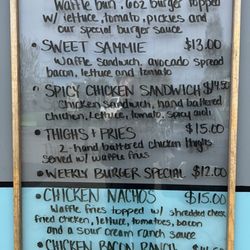 Waffle bun, 6oz burger topped
w/ lettuce, tomato, pickles and
our special burger sauce
• SWEET SAMMIE $13.00
Waffle sandwich, avocado spread
bacon, lettuce and tomato
• SPICY CHICKEN SANDWICH $14.50
Chicken sandwich, hand battered
chicken, lettuce, tomato, spicy aioli
• THIGHS & FRIES $15.00
2-hand battered chicken thighs
served w/ waffle fries
• WEEKLY BURGER SPECIAL $12.00
• CHICKEN NACHOS $15.00
Waffle fries topped w/ shredded cheese
fried chicken, lettuce, tomatoes, bacon
and a sour cream ranch sauce
• CHICKEN BACON RANCH